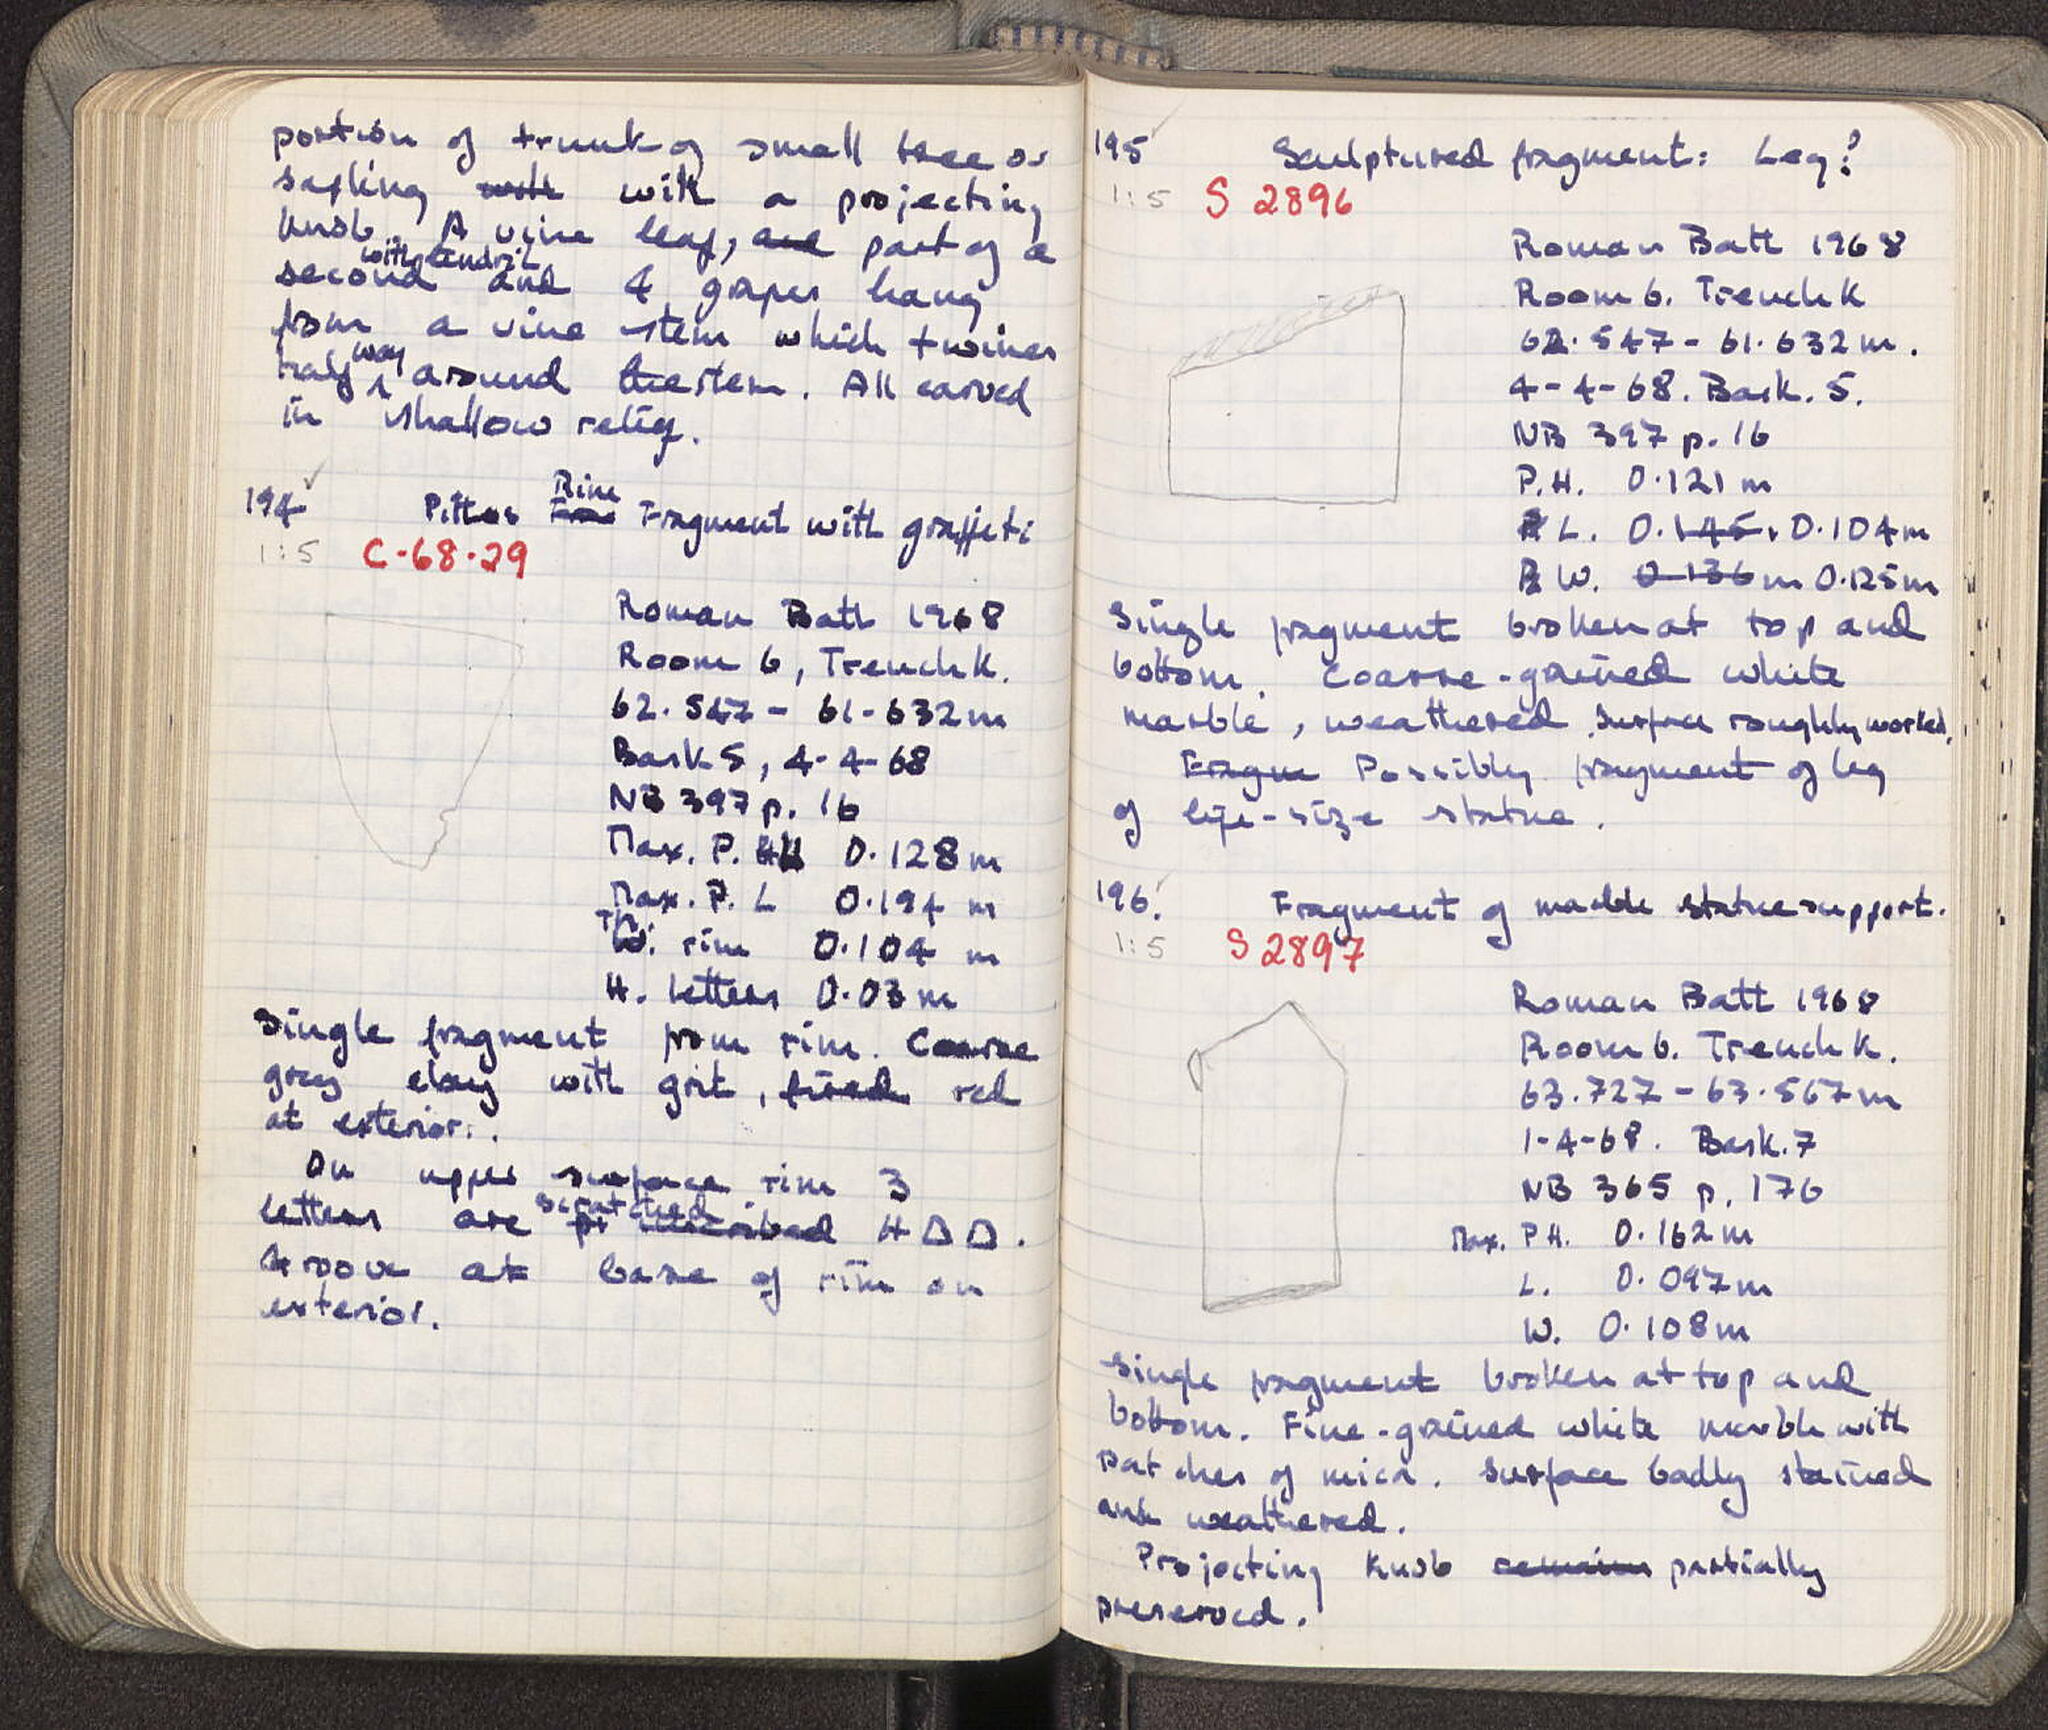 portion of trunk of small tree or
sapling with with a projecting
knob. A vine leaf, and part of a
with tendril
second and 4 grapes hang
from a vine stem which twines
half way around the stem. All carved
in shallow relief.
194 Pithos Rim Fragment with graffiti
1:5 C-68-29
Roman Bath 1968
Room 6, Trench K.
62.547 - 61.632 m
Bask 5, 4-4-68
NB 397 p. 16
Max. P. H 0.128 m
Max. P. L 0.194 m
Th. W. rim 0.104 m
H. letters 0.03 m
Single fragment from rim. Coarse
grey clay with grit, fired red
at exterior.
On upper surface rim 3
letters are scratched inscribed H Δ Δ.
Groove at base of rim on
exterior.
195 Sculptured fragment: Leg?
1:5 S 2896
Roman Bath 1968
Room 6. Trench K
62.547 - 61.632 m.
4-4-68. Bask. 5.
NB 397 p. 16
P.H. 0.121 m
L. 0.145. 0.104 m
W. 0.136 m 0.125 m
Single fragment broken at top and
bottom. Coarse-grained white
marble, weathered. Surface roughly worked.
Fragm Possibly fragment of leg
of life-size statue.
196. Fragment of marble statue support.
1:5 S 2897
Roman Bath 1968
Room 6. Trench K.
63.727 - 63.567 m
1-4-68. Bask. 7
NB 365 p. 176
Max. P H. 0.162 m
L. 0.097 m
W. 0.108 m
Single fragment broken at top and
bottom. Fine-grained white marble with
patches of mica. Surface badly stained
and weathered.
Projecting knob remains partially
preserved.